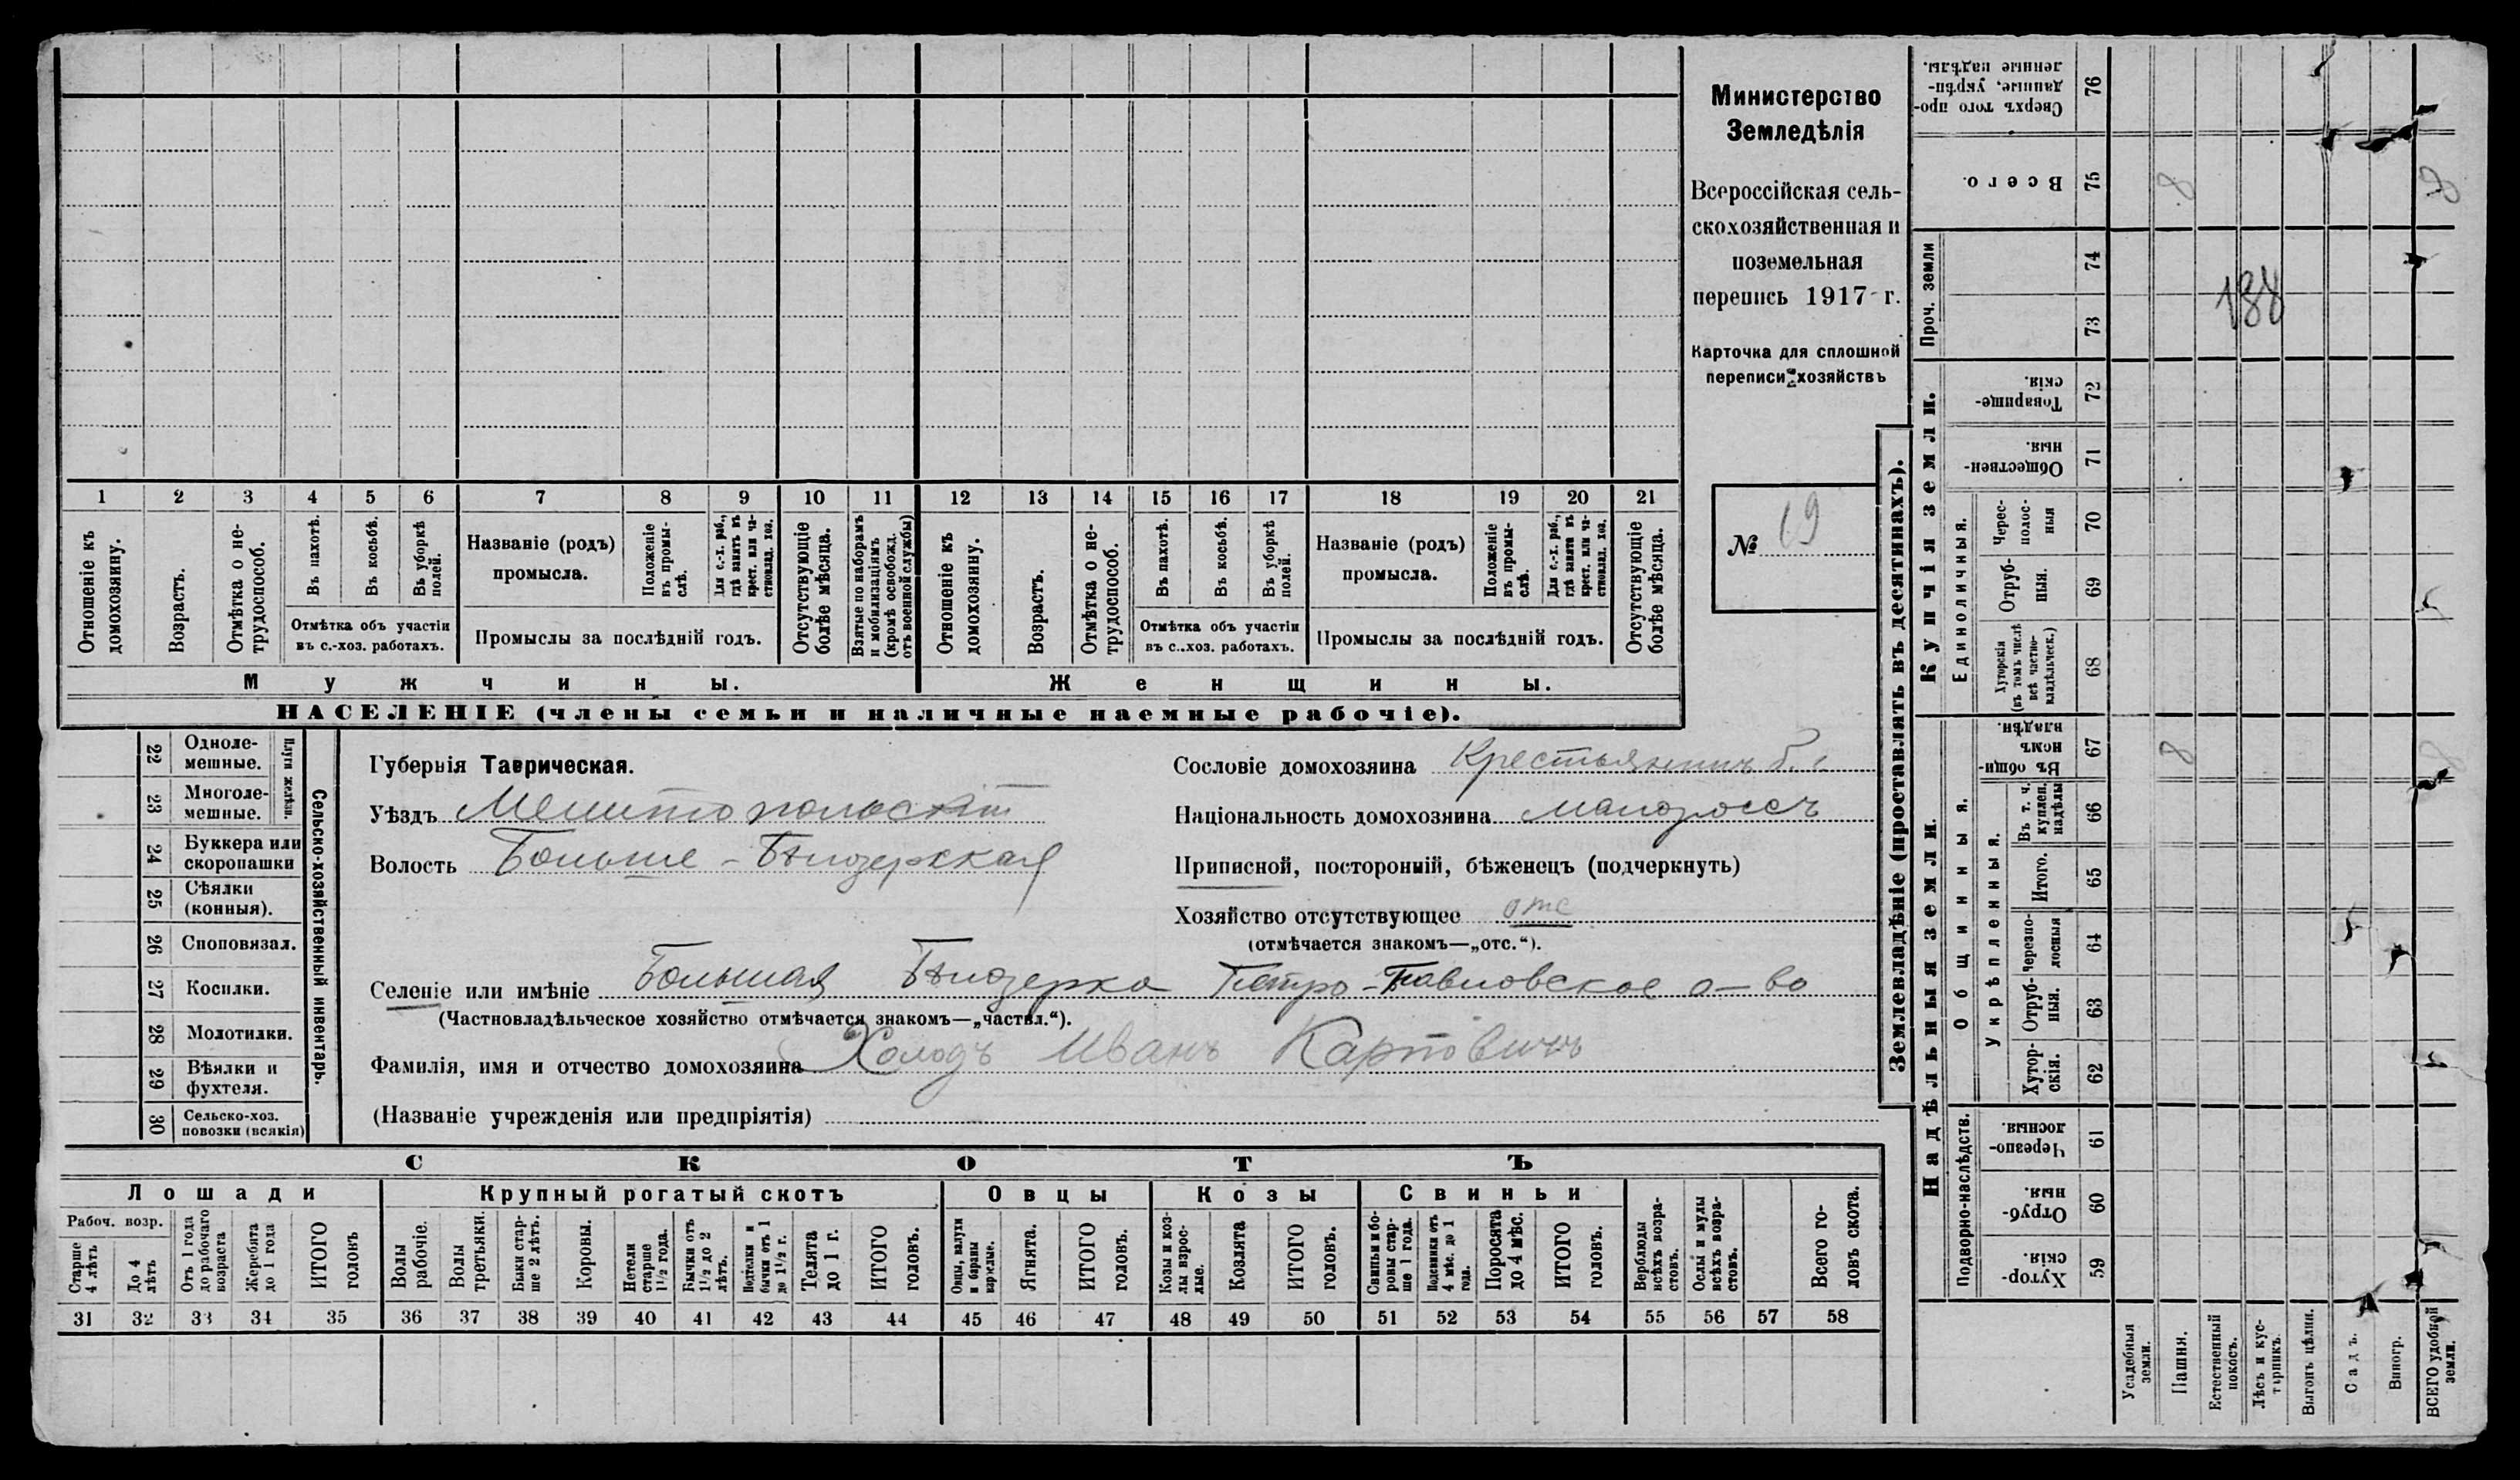 Министерство
Земледѣлія
Всероссійская сель-
скохозяйственная и
поземельная
перепись 1917 г.
Карточка для сплошной
переписи хозяйствъ
№ 19
1 2 3 4 5 6 7 8 9 10 11 12 13 14 15 16 17 18 19 20 21
Отношеніе къ домохозяину.
Возрастъ.
Отмѣтка о не-трудоспособ.
Въ пахотѣ.
Въ косьбѣ.
Въ уборкѣ полей.
Отмѣтка объ участіи
въ с.-хоз. работахъ.
Названіе (родъ)
промысла.
Положеніе въ промы-слѣ.
Для с.-х. раб., гдѣ занятъ въ крест. или ча-стновлад. хоз.
Промыслы за послѣдній годъ.
Отсутствующіе болѣе мѣсяца.
Взятые по наборамъ и мобилизаціямъ (кромѣ освобожд. отъ военной службы)
Отношеніе къ домохозяину.
Возрастъ.
Отмѣтка о не-трудоспособ.
Въ пахотѣ.
Въ косьбѣ.
Въ уборкѣ полей.
Отмѣтка объ участіи
въ с..хоз. работахъ.
Названіе (родъ)
промысла.
Положеніе въ промы-слѣ.
Для с.-х. раб., гдѣ занята въ крест. или ча-стновлад. хоз.
Промыслы за послѣдній годъ.
Отсутствующіе болѣе мѣсяца.
Мужчины.
Женщины.
НАСЕЛЕНІЕ (члены семьи и наличные наемные рабочіе).
22 Одноле-мешные.
23 Многоле-мешные.
Плуги желѣзн.
24 Буккера или скоропашки
25 Сѣялки (конныя).
26 Сноповязал.
27 Косилки.
28 Молотилки.
29 Вѣялки и фухтеля.
30 Сельско-хоз. повозки (всякія)
Сельско-хозяйственный инвентарь.
Губернія Таврическая.
Уѣздъ Мелитопольскій
Волость Больше-Бѣлозерская
Сословіе домохозяина Крестьянинъ б.
Національность домохозяина малороссъ
Приписной, посторонній, бѣженецъ (подчеркнуть)
Хозяйство отсутствующее отс
(отмѣчается знакомъ—„отс.“).
Селеніе или имѣніе Большая Бѣлозерка Петро-Павловское о-во
(Частновладѣльческое хозяйство отмѣчается знакомъ—„частвл.“).
Фамилія, имя и отчество домохозяина Холодъ Иванъ Карповичъ
(Названіе учрежденія или предпріятія)
СКОТЪ
Лошади
Крупный рогатый скотъ
Овцы
Козы
Свиньи
Рабоч. возр.
Старше 4 лѣтъ
До 4 лѣтъ
Отъ 1 года до рабочаго возраста
Жеребята до 1 года
ИТОГО головъ
Волы рабочіе.
Волы третьяки.
Быки стар-ше 2 лѣтъ.
Коровы.
Нетели старше 1½ года.
Бычки отъ 1½ до 2 лѣтъ.
Подтелки и бычки отъ 1 до 1½ г.
Телята до 1 г.
ИТОГО головъ.
Овцы, валухи и бараны взрослые.
Ягнята.
ИТОГО головъ.
Козы и коз-лы взрос-лые.
Козлята
ИТОГО головъ.
Свиньи и бо-ровы стар-ше 1 года.
Подсвинки отъ 4 мѣс. до 1 года.
Поросята до 4 мѣс.
ИТОГО головъ.
Верблюды всѣхъ возра-стовъ.
Ослы и мулы всѣхъ возра-стовъ.
Всего го-ловъ скота.
31 32 33 34 35 36 37 38 39 40 41 42 43 44 45 46 47 48 49 50 51 52 53 54 55 56 57 58
Землевладѣніе (проставлять въ десятинахъ).
Сверхъ того про-данные, укрѣп-ленные надѣлы. 76
Всего. 75 8 8
Проч. земли 74
73
188
Купчія земли.
Товарище-скія. 72
Обществен-ныя 71
Единоличныя.
Черес-полос-ныя 70
Отруб-ныя. 69
Хуторскія (въ томъ числѣ всѣ частно-владѣльческ.) 68
Надѣльныя земли.
Общинныя.
Въ общин-номъ владѣн. 67 8 8
Укрѣпленныя.
Въ т. ч. куплен. надѣлы 66
Итого. 65
Черезпо-лосныя 64
Отруб-ныя. 63
Хутор-скія. 62
Подворно-наслѣдств.
Черезпо-лосныя. 61
Отруб-ныя. 60
Хутор-скія. 59
Усадебныя земли.
Пашня.
Естественный покосъ.
Лѣсъ и кус-тарникъ.
Выгонъ цѣлин.
Садъ.
Виногр.
ВСЕГО удобной земли.